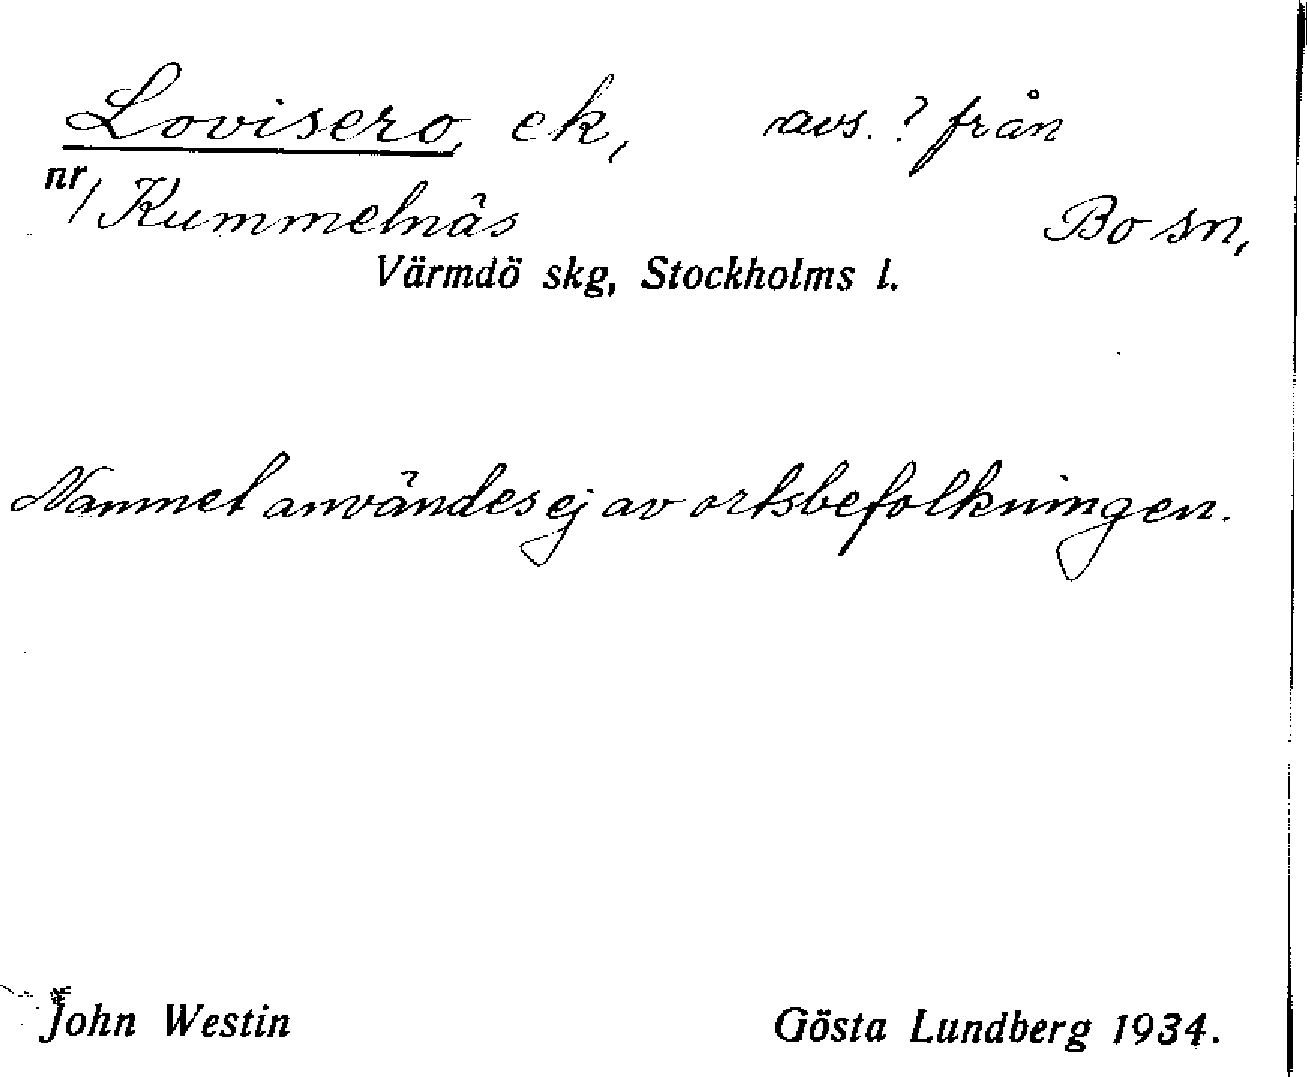 Lovisero, ek, avs. ? från
nr/ Kummelnäs Bo sn,
Värmdö skg, Stockholms l.
Namnet användes ej av ortsbefolkningen.
John Westin Gösta Lundberg 1934.